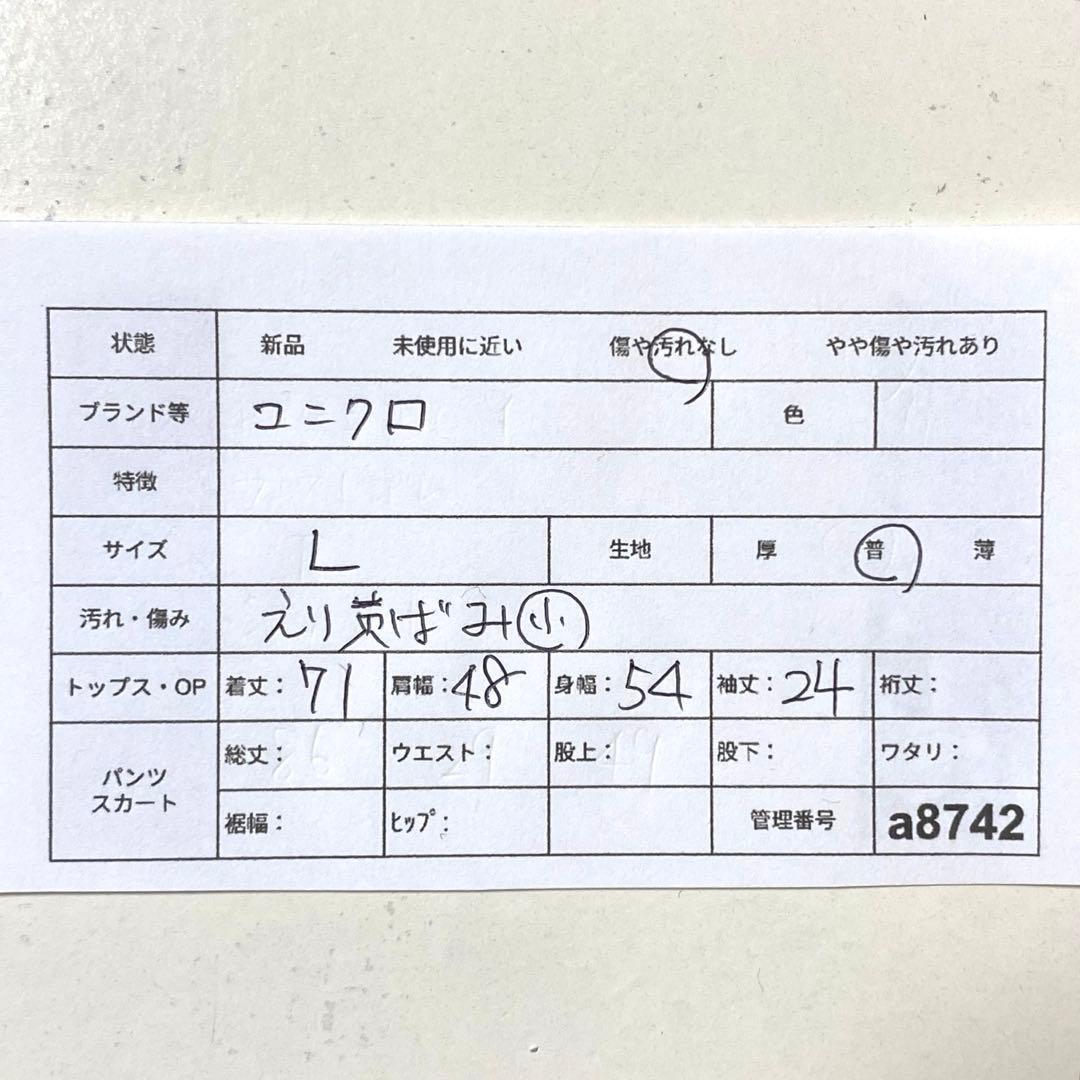 状態 新品 未使用に近い 傷や汚れなし やや傷や汚れあり
ブランド等 ユニクロ 色
特徴
サイズ L 生地 厚 普 薄
汚れ・傷み えり黄ばみ小
トップス・OP 着丈：71 肩幅：48 身幅：54 袖丈：24 裄丈：
パンツ スカート 総丈： ウエスト： 股上： 股下： ワタリ：
裾幅： ヒップ： 管理番号 a8742